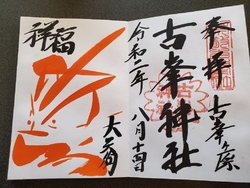 奉拝
古峯ヶ原
古峯神社
令和二年八月十四日
大天狗
祥福